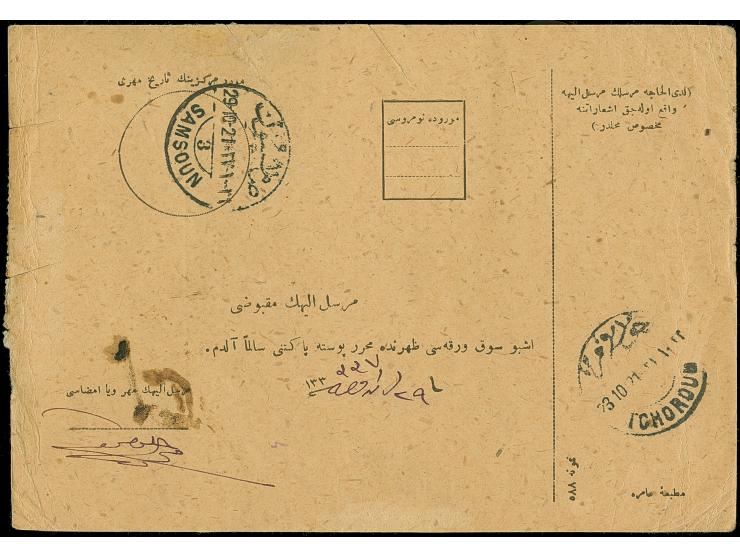 (لدى الحاجه مرسلك مرسل اليهه
واقع اوله جق اشعاراتنه
مخصوص محلدر)
مورد مركزينك تاريخ مهرى
29-10-21
SAMSOUN
3
موروده نومروسى
مرسل اليهك مقبوضى
اشبو سوق ورقه سى ظهرنده محرر پوسته پاكتنى سالماً آلدم.
١٣٣
مرسل اليهك مهر ويا امضاسى
23 10 21
TCHOROUM
نمونه ٥٨٨
مطبعهٔ عامره